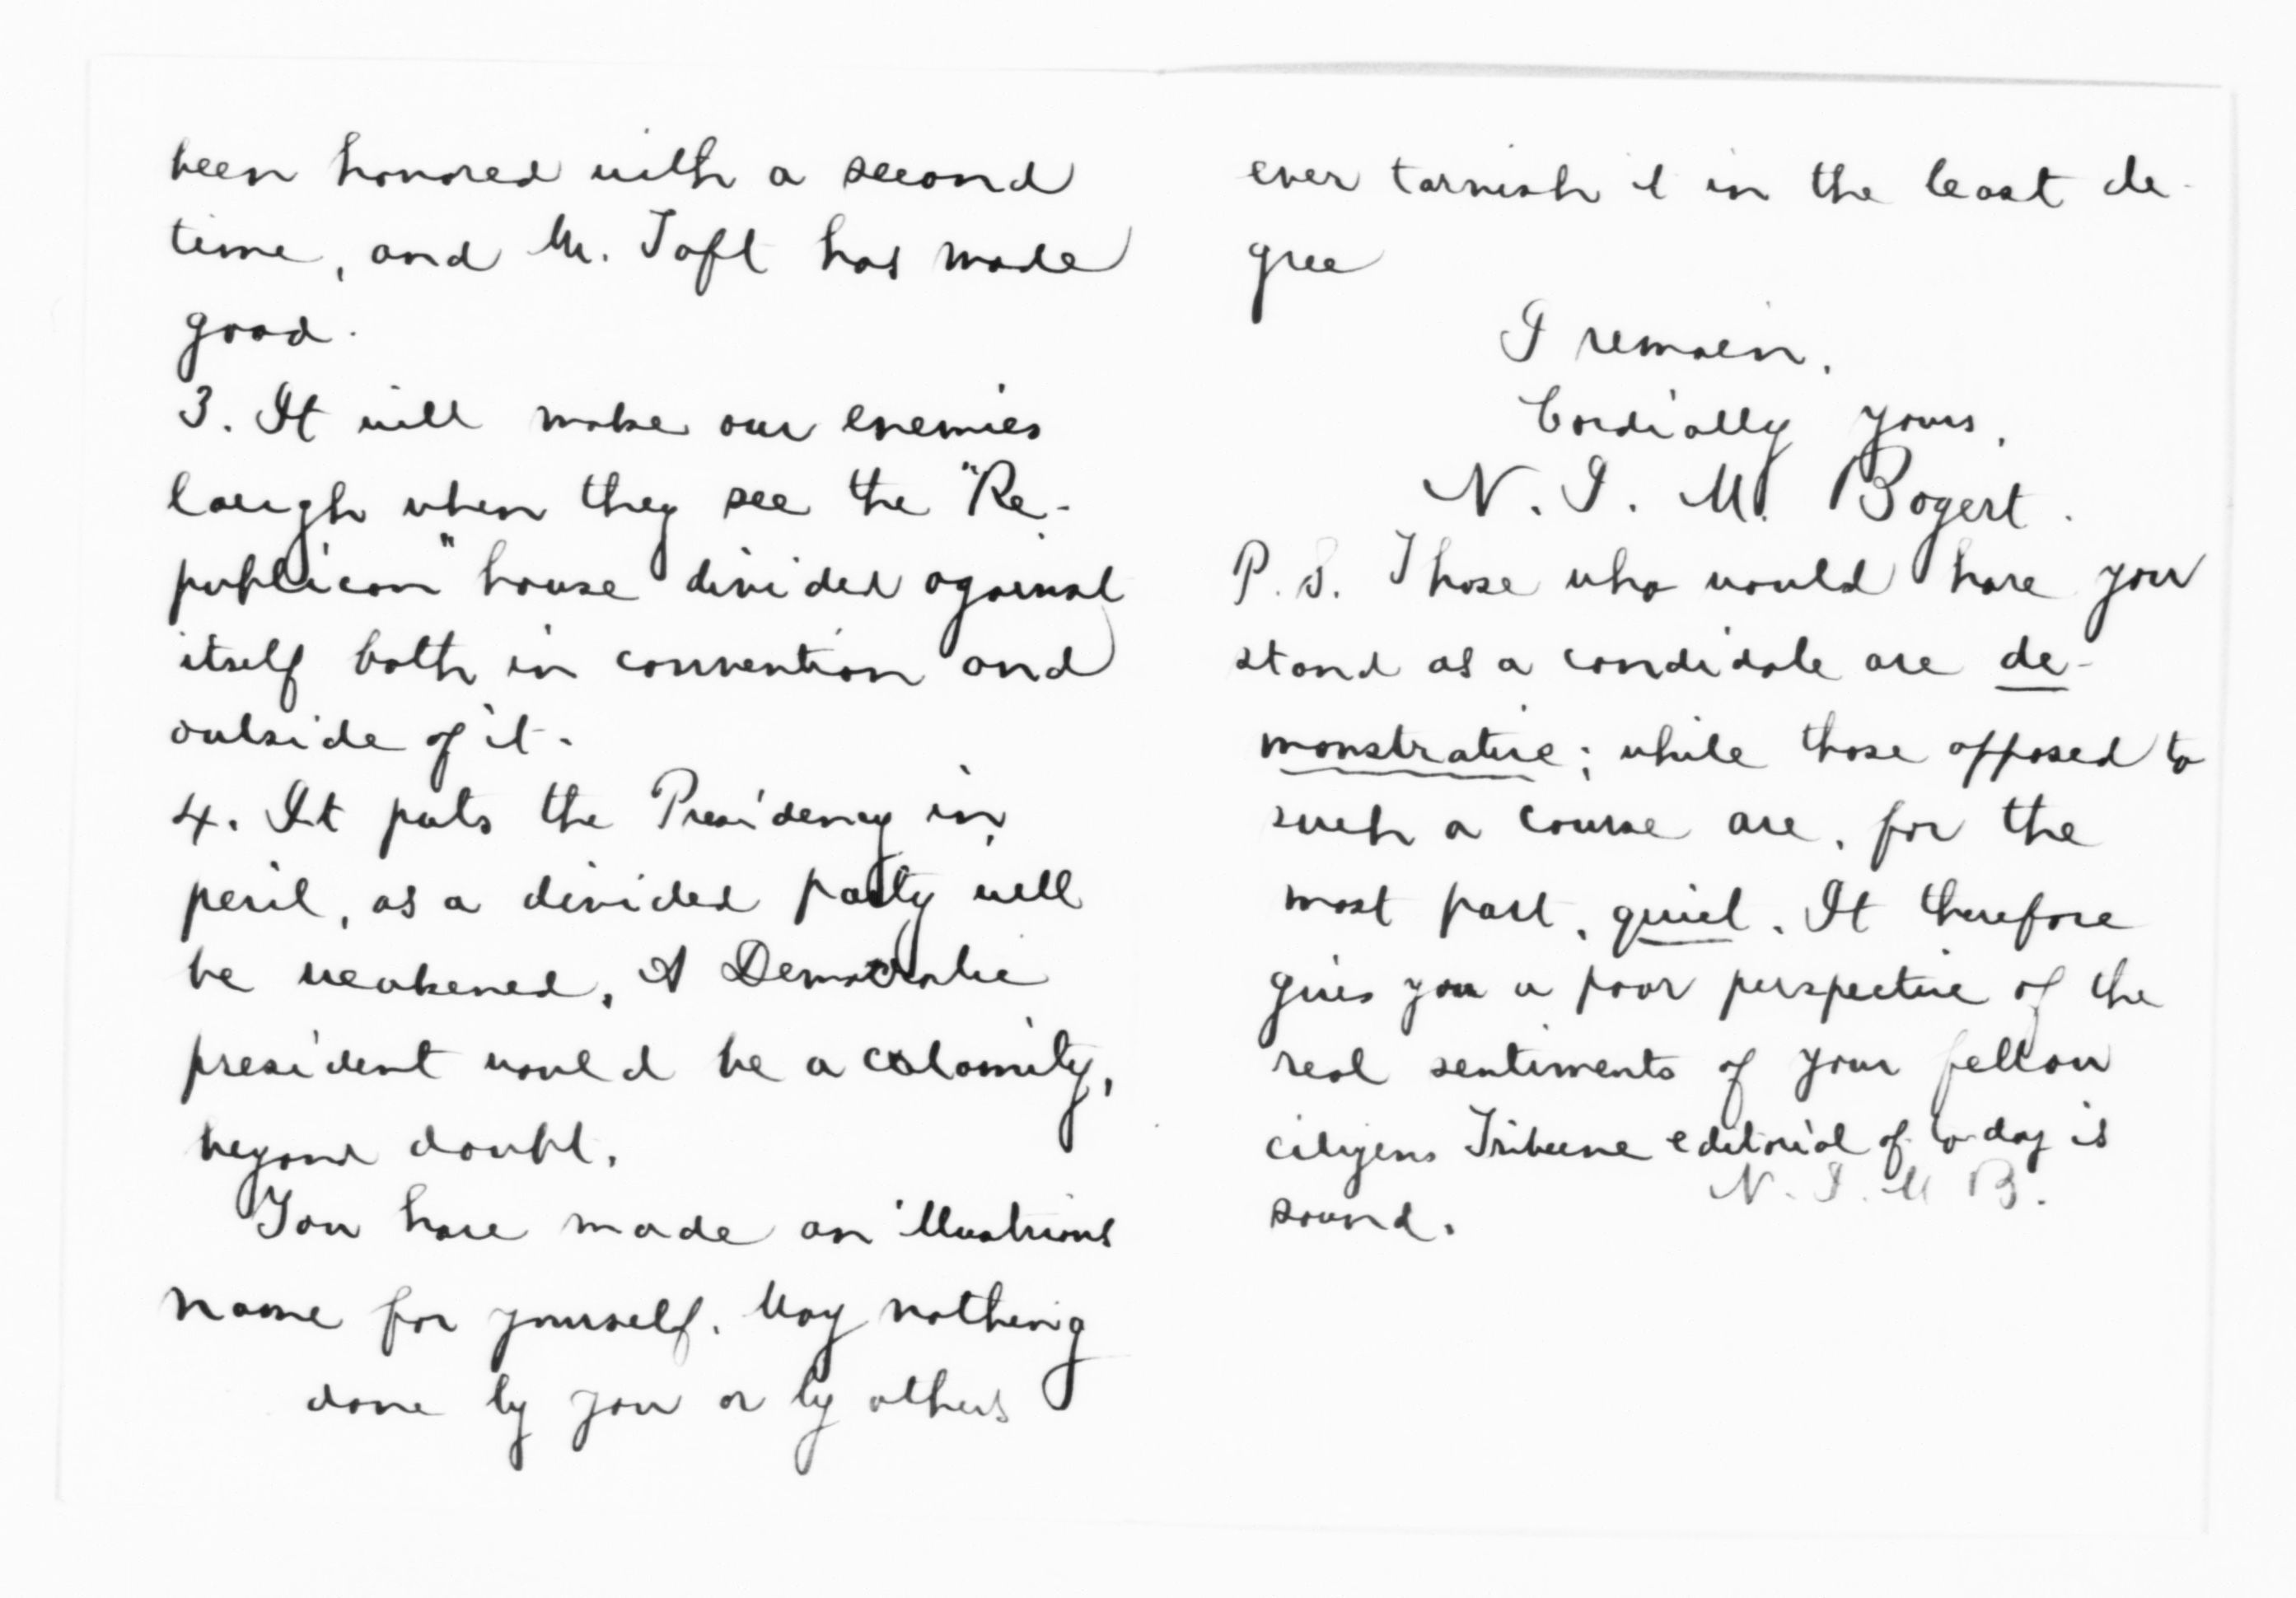 been honored with a second
time, and Mr. Taft has made
good.
3. It will make our enemies
laugh when they see the "Re-
publican" house divided against
itself both in convention and
outside of it.
4. It puts the Presidency in
peril, as a divided party will
be weakened. A Democratic
president would be a calamity,
beyond doubt.
You have made an illustrious
name for yourself. May nothing
done by you or by others
ever tarnish it in the least de-
gree
I remain,
Cordially yours,
N. I. M. Bogert.
P.S. Those who would have you
stand as a candidate are de-
monstrative; while those opposed to
such a course are, for the
most part, quiet. It therefore
gives you a poor perspective of the
real sentiments of your fellow
citizens Tribune editorial of to-day is
sound.
N. I. M B.